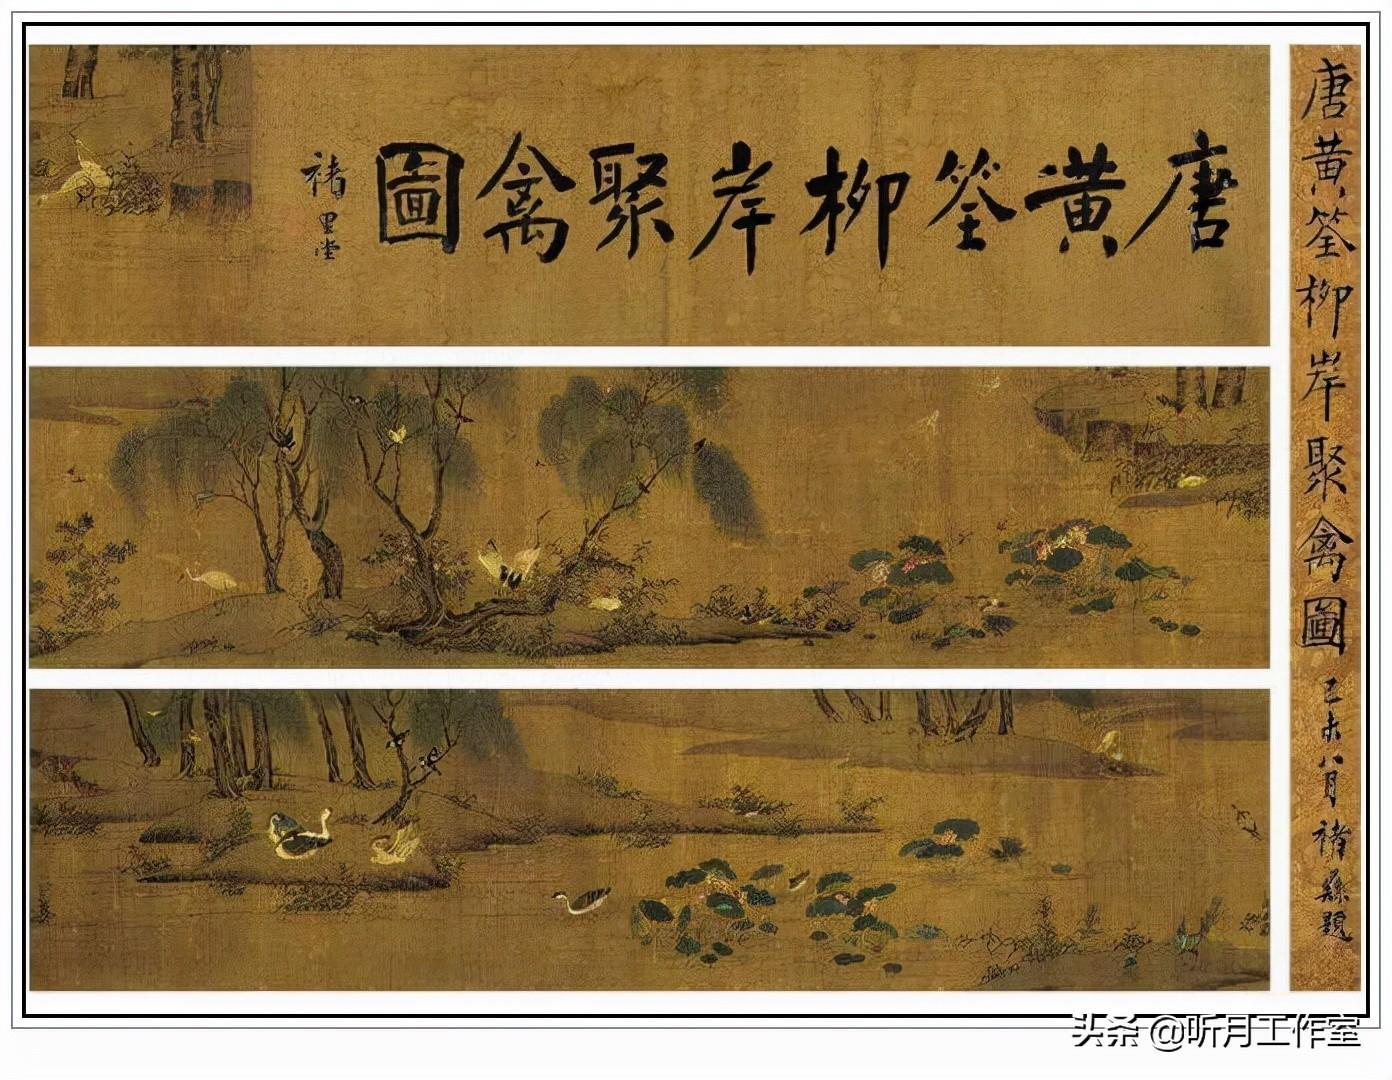 唐黄筌柳岸聚禽圖
褚
唐黄筌柳岸聚禽圖 己未八月 褚 題
头条 @听月工作室